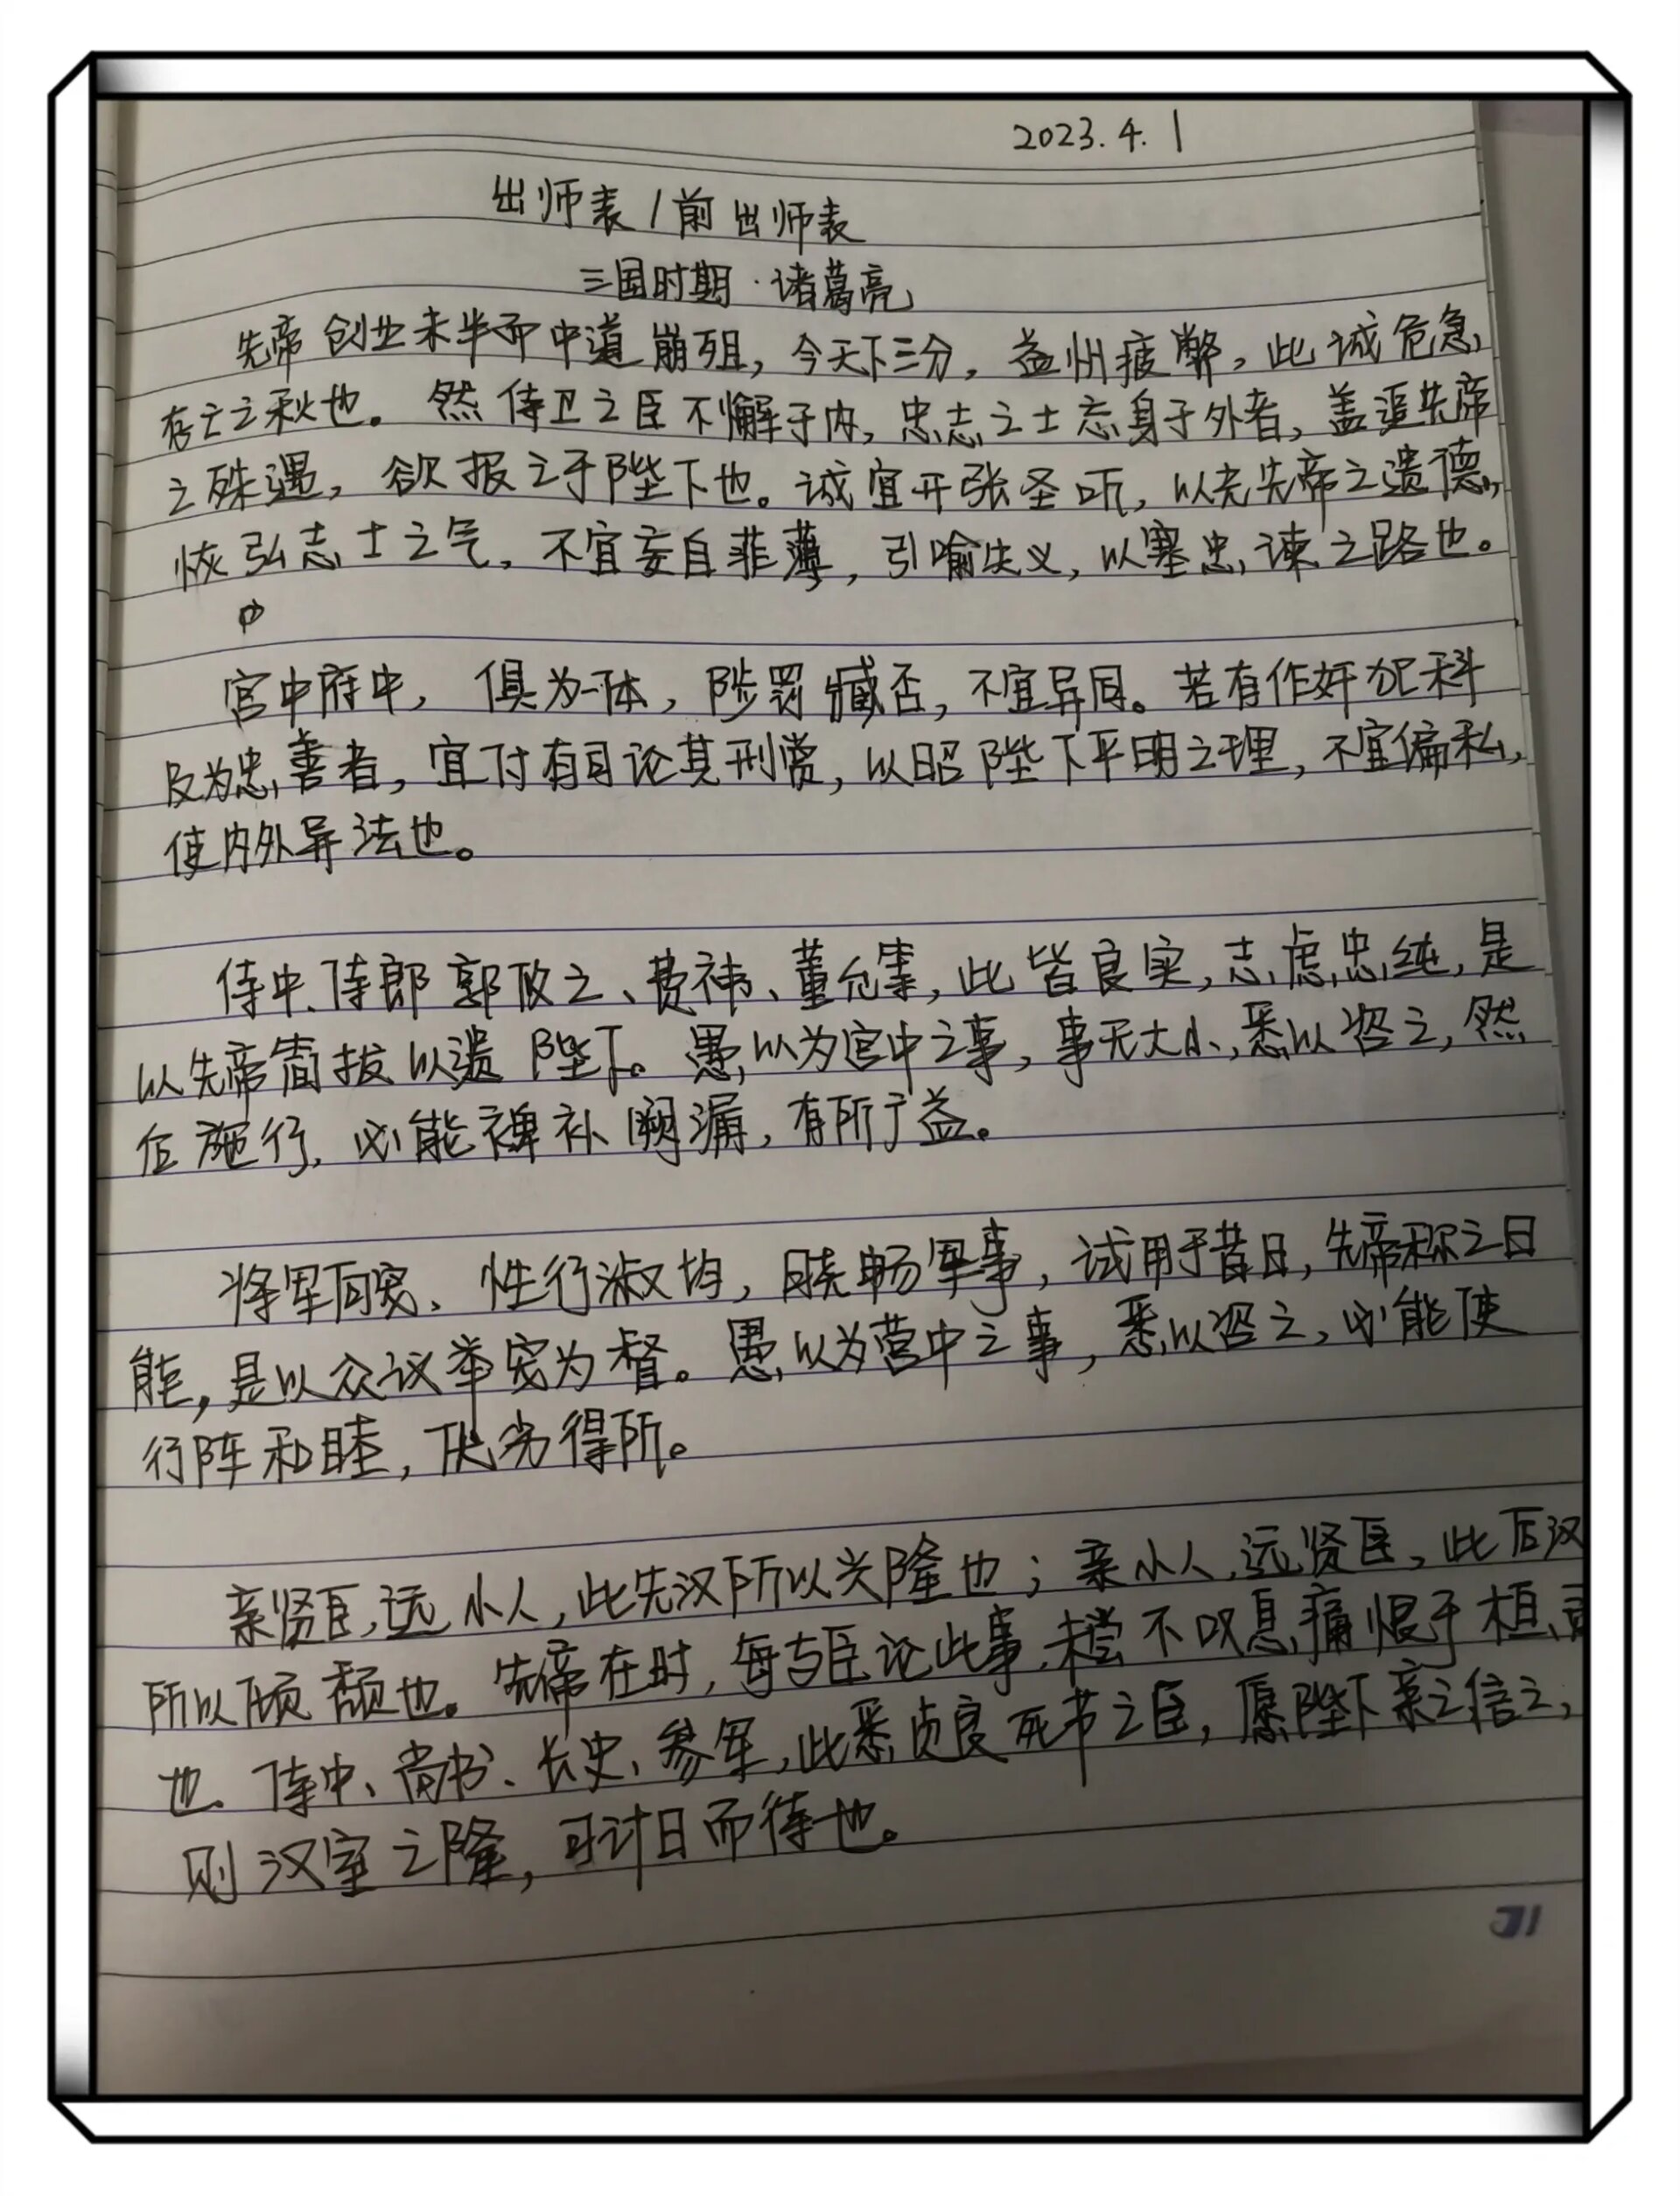 2023.4.1
出师表/前出师表
三国时期·诸葛亮
先帝创业未半而中道崩殂，今天下三分，益州疲弊，此诚危急
存亡之秋也。然侍卫之臣不懈于内，忠志之士忘身于外者，盖追先帝
之殊遇，欲报之于陛下也。诚宜开张圣听，以光先帝之遗德，
恢弘志士之气，不宜妄自菲薄，引喻失义，以塞忠谏之路也。
宫中府中，俱为一体，陟罚臧否，不宜异同。若有作奸犯科
及为忠善者，宜付有司论其刑赏，以昭陛下平明之理，不宜偏私，
使内外异法也。
侍中、侍郎郭攸之、费祎、董允等，此皆良实，志虑忠纯，是
以先帝简拔以遗陛下。愚以为宫中之事，事无大小，悉以咨之，然
后施行，必能裨补阙漏，有所广益。
将军向宠、性行淑均，晓畅军事，试用于昔日，先帝称之曰
能，是以众议举宠为督。愚以为营中之事，悉以咨之，必能使
行阵和睦，优劣得所。
亲贤臣，远小人，此先汉所以兴隆也；亲小人，远贤臣，此后汉
所以倾颓也。先帝在时，每与臣论此事，未尝不叹息痛恨于桓、
也、侍中、尚书、长史、参军，此悉贞良死节之臣，愿陛下亲之信之，
则汉室之隆，可计日而待也。